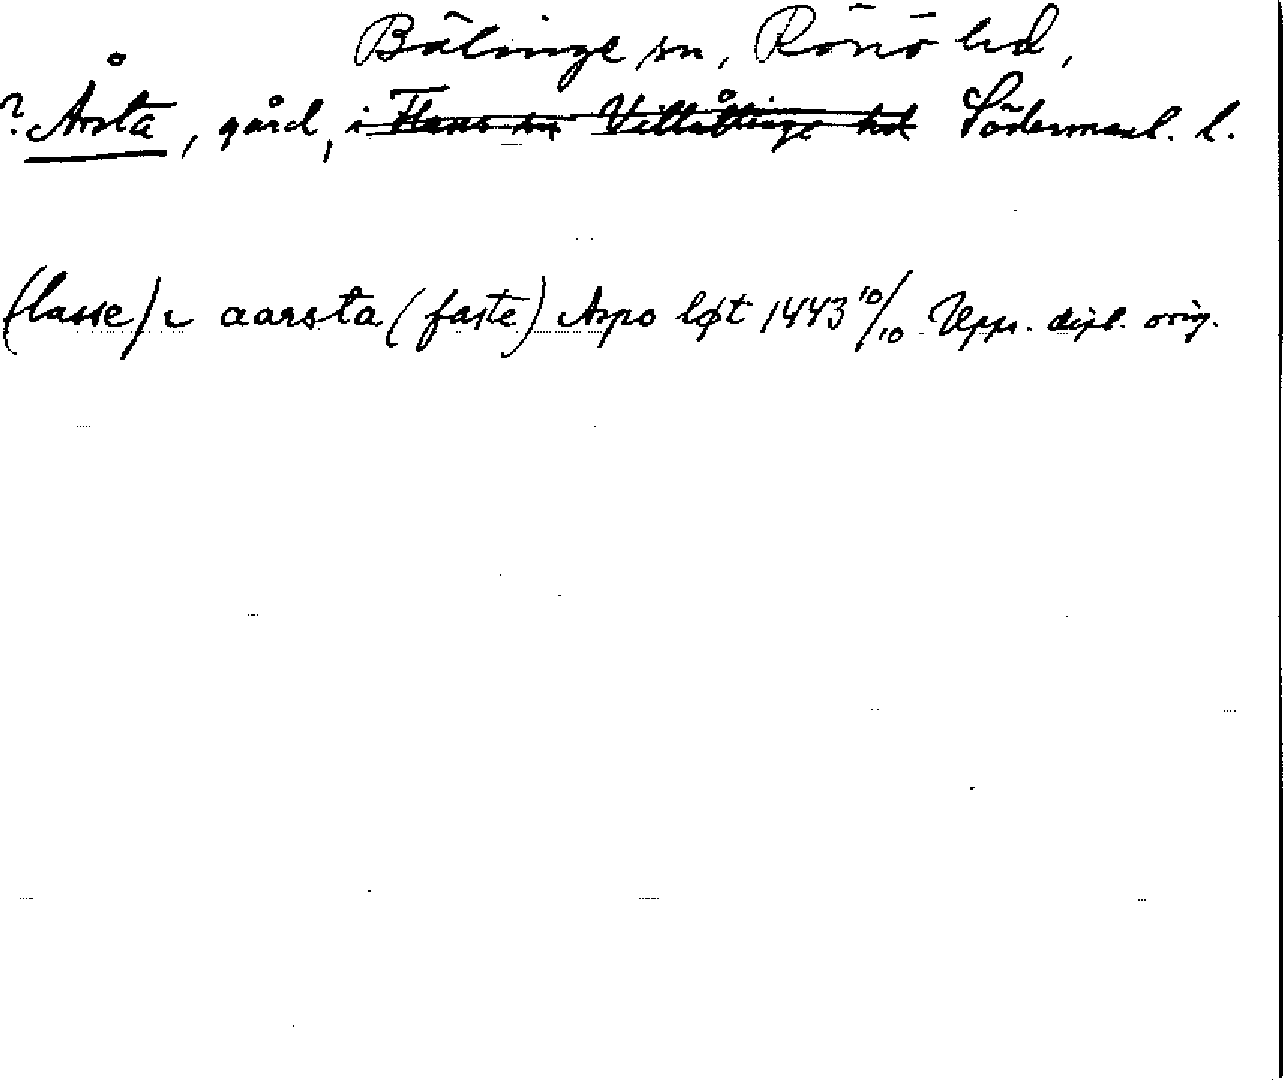 Bälinge sn, Rönö hd,
? Årsta, gård, i Flens sn Villåttinge hd Södermanl. l.
(lasse) i aarsta (faste) Aspo løt 1443 10/10 Upps. dipl. orig.